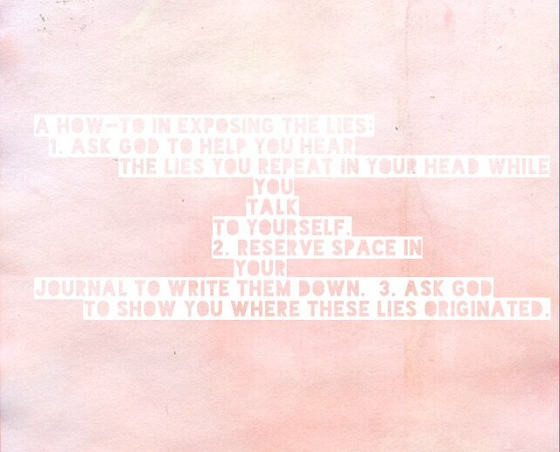 A HOW-TO IN EXPOSING THE LIES:
1. ASK GOD TO HELP YOU HEAR
THE LIES YOU REPEAT IN YOUR HEAD WHILE
YOU
TALK
TO YOURSELF.
2. RESERVE SPACE IN
YOUR
JOURNAL TO WRITE THEM DOWN. 3. ASK GOD
TO SHOW YOU WHERE THESE LIES ORIGINATED.